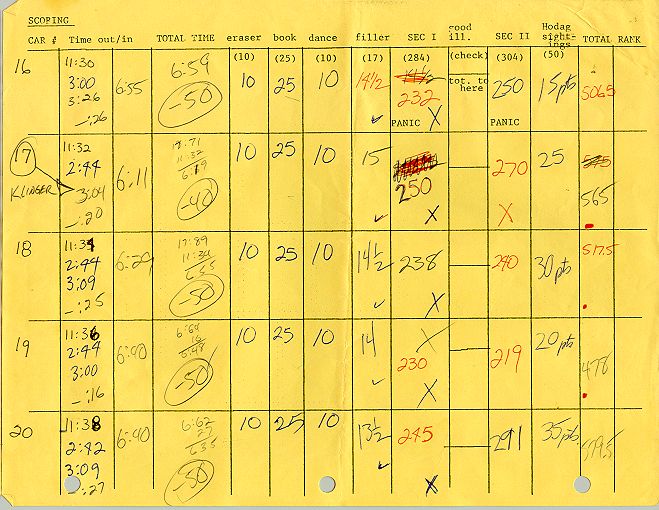 SCOPING
CAR # Time out/in TOTAL TIME eraser book dance filler SEC I good ill. SEC II Hodag sight-ings TOTAL RANK
(10) (25) (10) (17) (284) (check) (304) (50)
16 11:30 6:55 6:59 10 25 10 14½ tot. to here 250 15pts 506.5
3:00 -50 232
3:26
-:26 PANIC X PANIC
17 11:32 6:11 17:71 10 25 10 15 270 25 575
2:44 11:32
KLINGER 3:04 6:19 250 565
-:20 -40 X X
18 11:34 6:29 17:89 10 25 10 14½ 238 240 30pts 517.5
2:44 11:34
3:09 6:55
-:25 -50 X
19 11:36 6:40 10 25 10 14 X 219 20pts 478
2:44 230
3:00 6:48
-:16 -50 X
20 11:38 6:40 6:62 10 25 10 13½ 245 291 35pts 579.5
2:42 27
3:09 6:35
-:27 -50 X